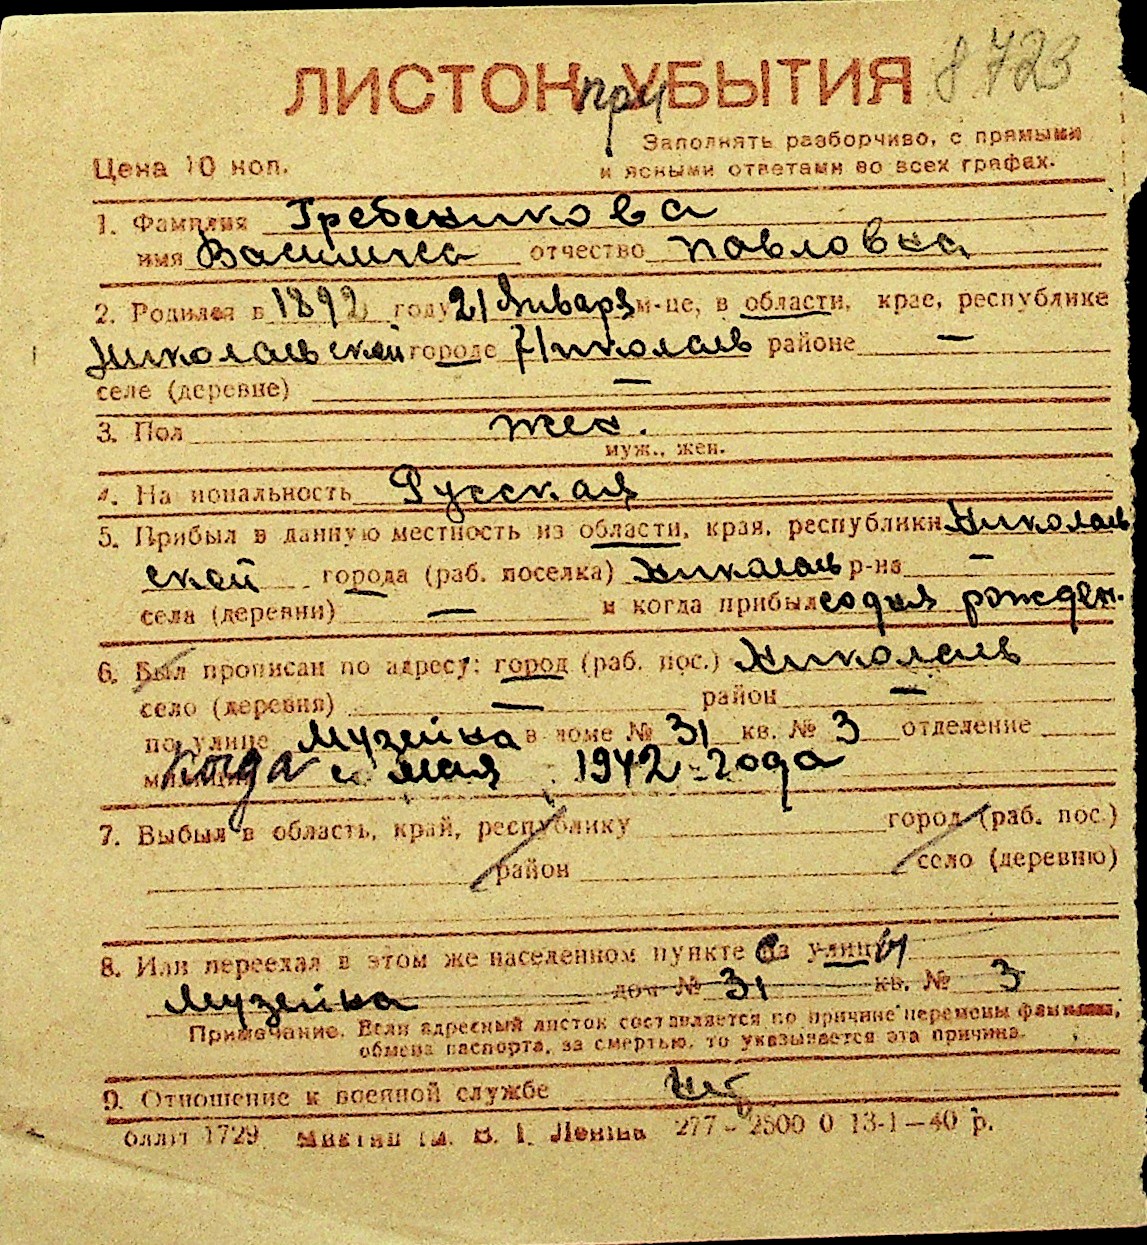 8723
ЛИСТОК при УБЫТИЯ
Заполнять разборчиво, с прямыми
Цена 10 коп. и ясными ответами во всех графах.
1. Фамилия Гребеникова
имя Василиса отчество Павловна
2. Родился в 1892 году 21 Января м-це, в области, крае, республике
Николаевской городе Николаев районе —
селе (деревне) —
3. Пол жен.
муж., жен.
4. Национальность Русская
5. Прибыл в данную местность из области, края, республики Николаев
ской города (раб. поселка) Николаев р-на —
села (деревни) — и когда прибыл со дня рожден.
6. Был прописан по адресу: город (раб. пос.) Николаев
село (деревня) — район —
по улице Музейна в доме № 31 кв. № 3 отделение
когда с мая 1942 года
7. Выбыл в область, край, республику город (раб. пос.)
район село (деревню)
8. Или переехал в этом же населенном пункте на улицы
Музейна дом № 31 кв. № 3
Примечание. Если адресный листок составляется по причине перемены фамилии,
обмена паспорта, за смертью, то указывается эта причина.
9. Отношение к военной службе Нет
1729 В. І. Леніна 277 – 2500 0 13-1—40 р.